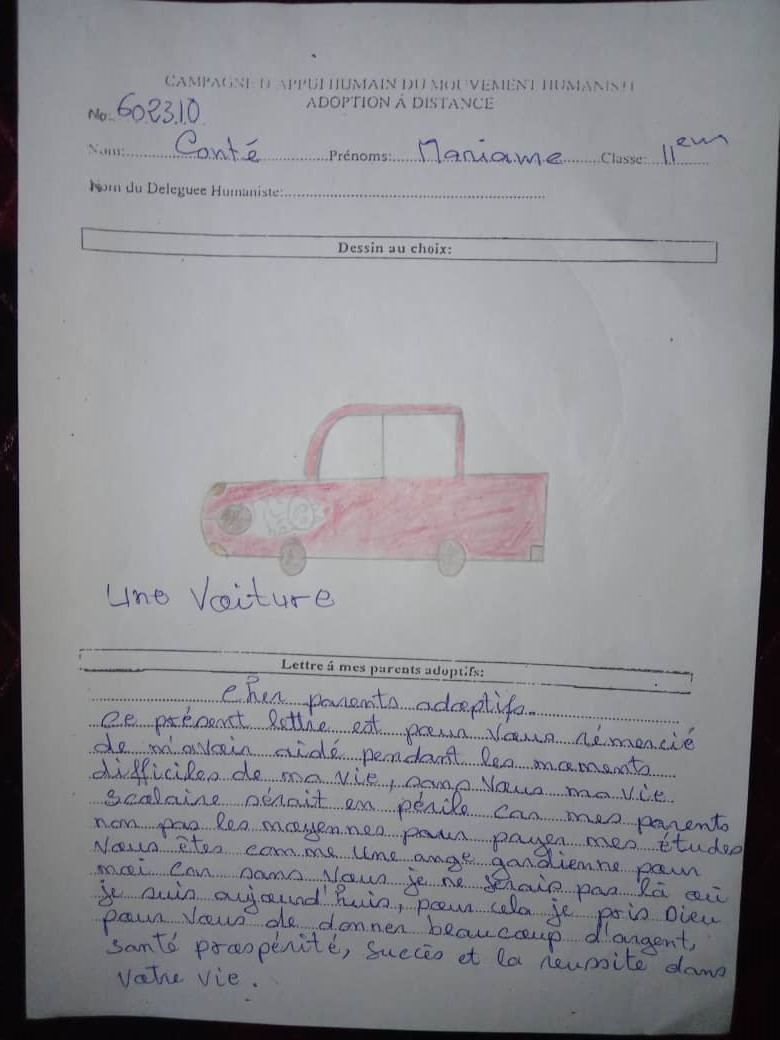 CAMPAGNE D'APPUI HUMAIN DU MOUVEMENT HUMANISTE
ADOPTION Á DISTANCE
No: 602310
Nom: Conté Prénoms: Mariame Classe: 11em
Nom du Deleguee Humaniste:
Dessin au choix:
Une Voiture
Lettre á mes parents adoptifs:
Cher parents adoptifs.
Ce présent lettre est pour Vous rémercié
de m'avoir aidé pendant les moments
difficiles de ma vie, sans Vous ma vie
Scolaire sérait en périle car mes parents
non pas les moyennes pour payer mes études
Vous êtes comme Une ange gardienne pour
moi car sans Vous je ne serais pas là où
je suis aujourd'huis, pour cela je pris Dieu
pour Vous de donner beaucoup d'argent,
Santé prospérité, Succès et la reussite dans
Votre vie.